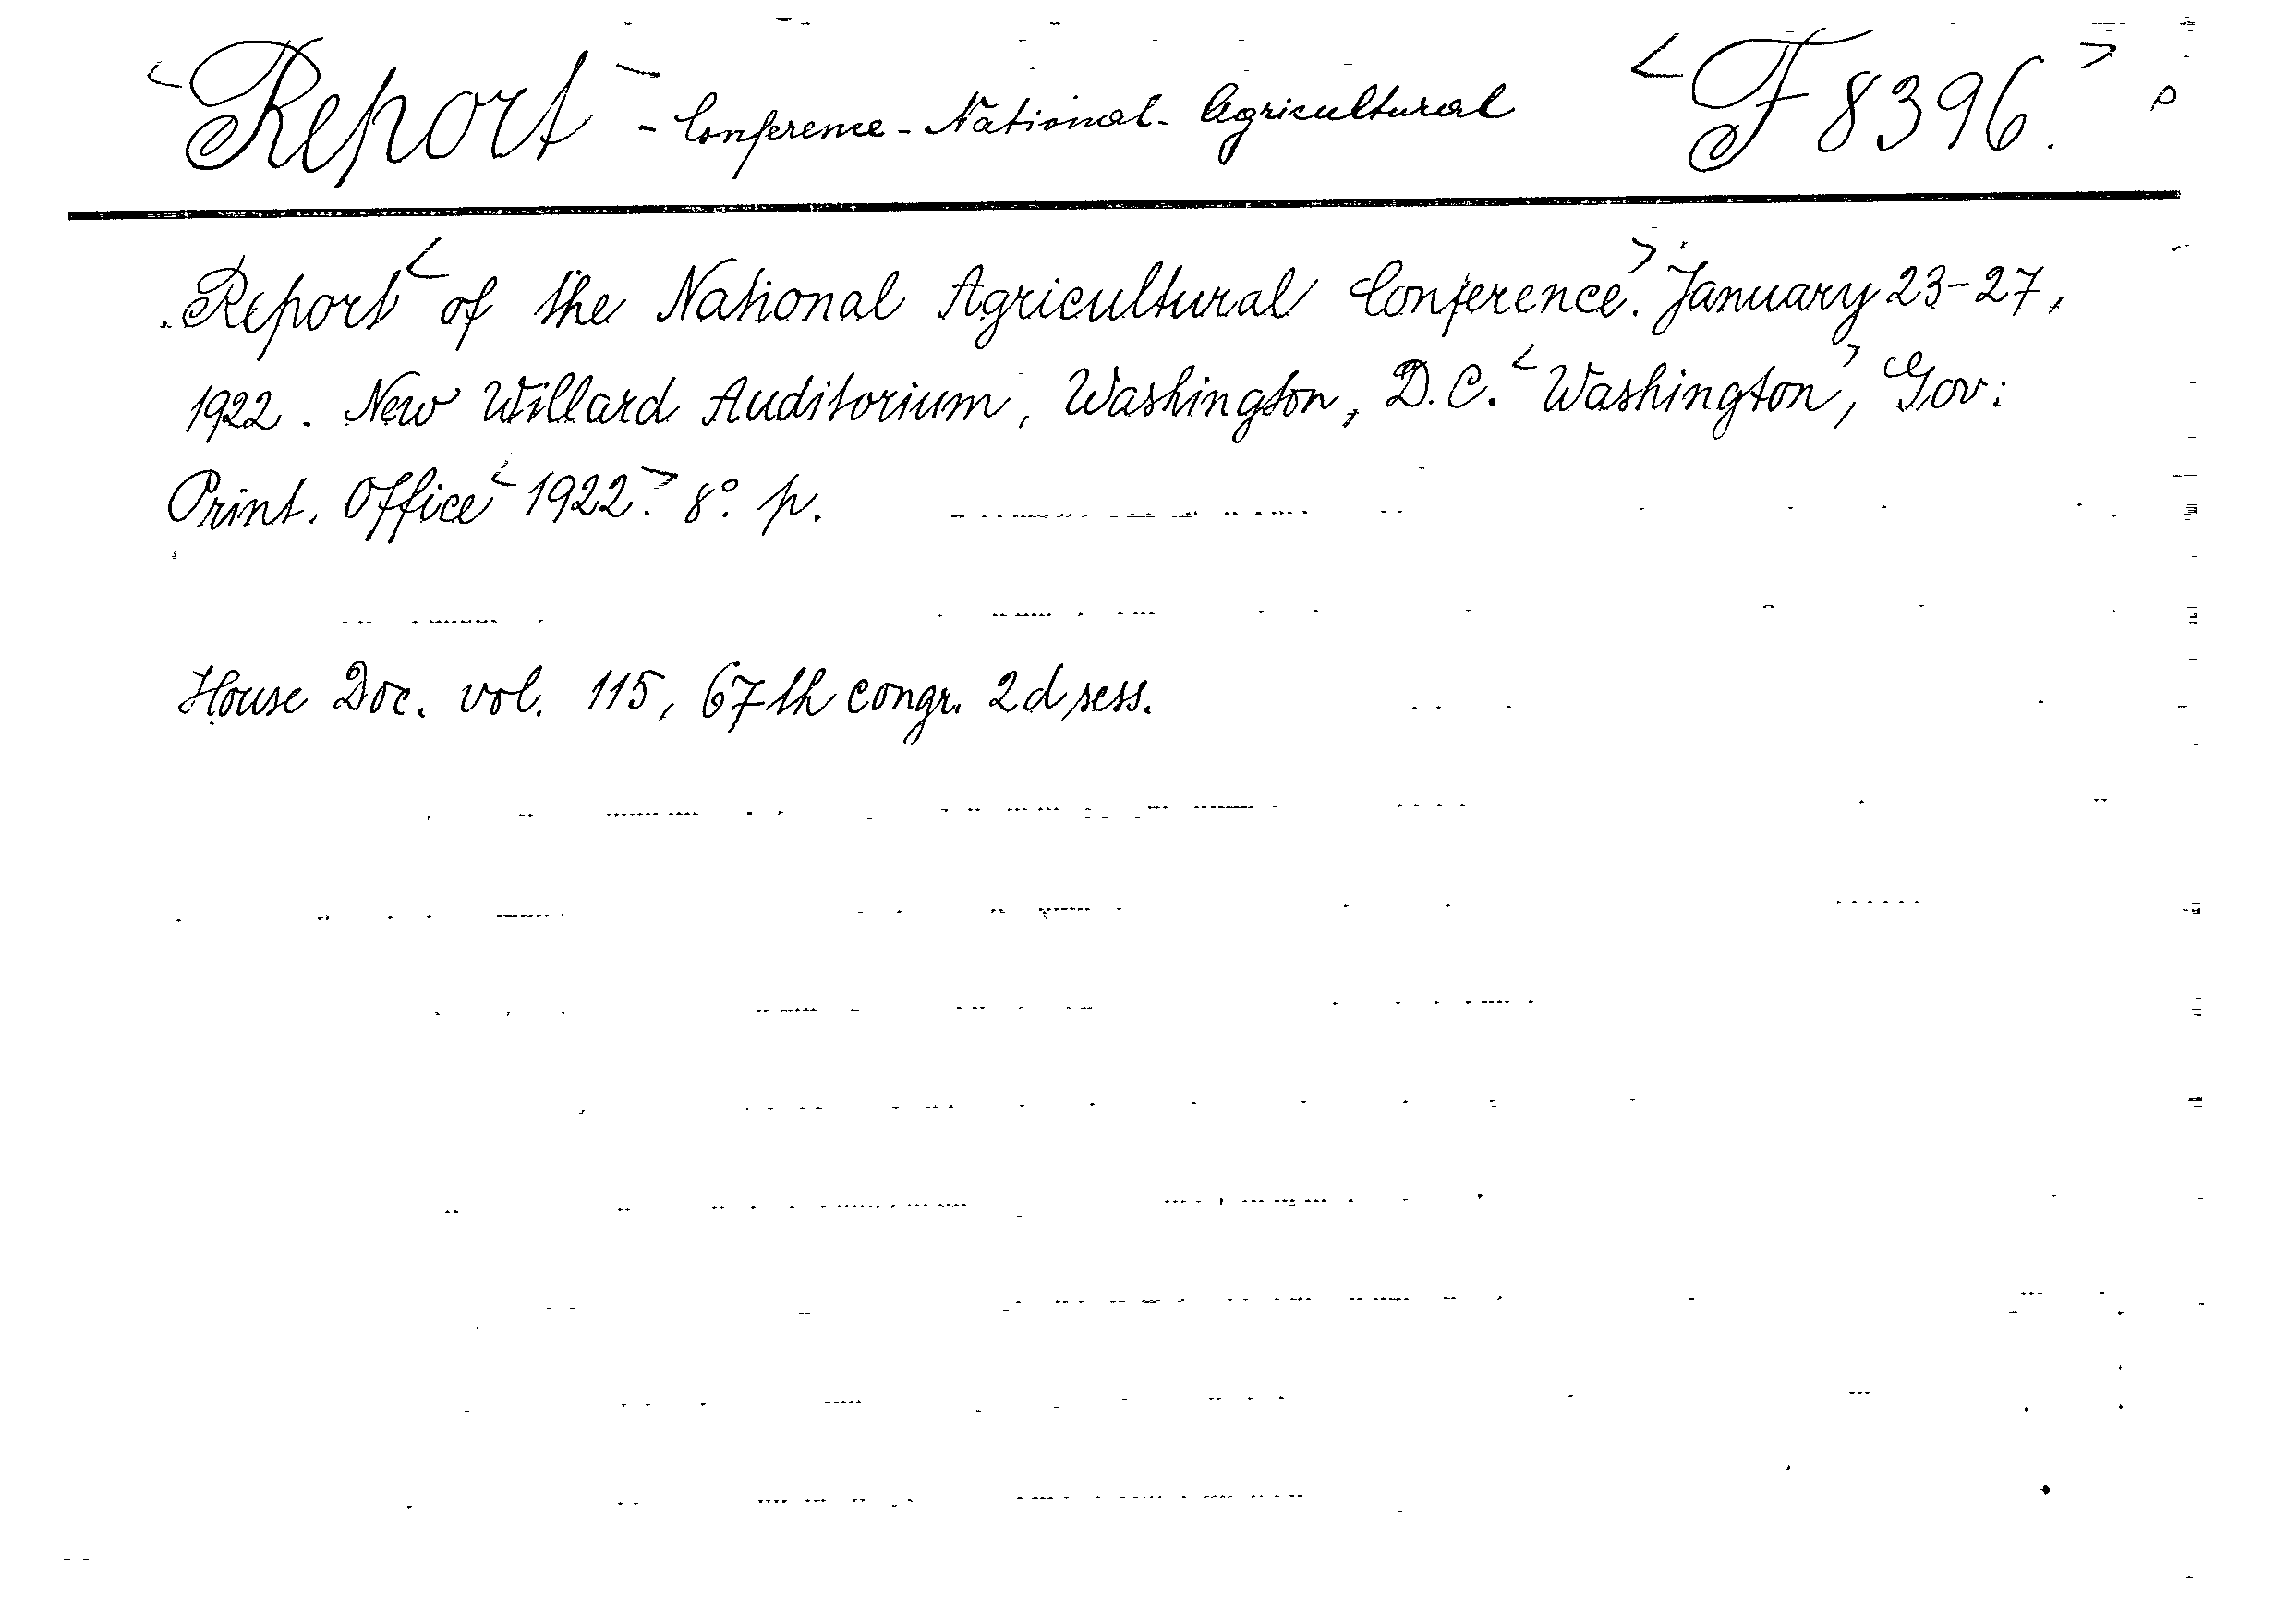 <Report> - Conference - National - Agricultural <F 8396.>
Report <of the National Agricultural Conference.> January 23-27,
1922. New Willard Auditorium, Washington, D.C. <Washington,> Gov:
Print. Office <1922.> 8° p.
House Doc. vol. 115, 67th congr. 2d sess.